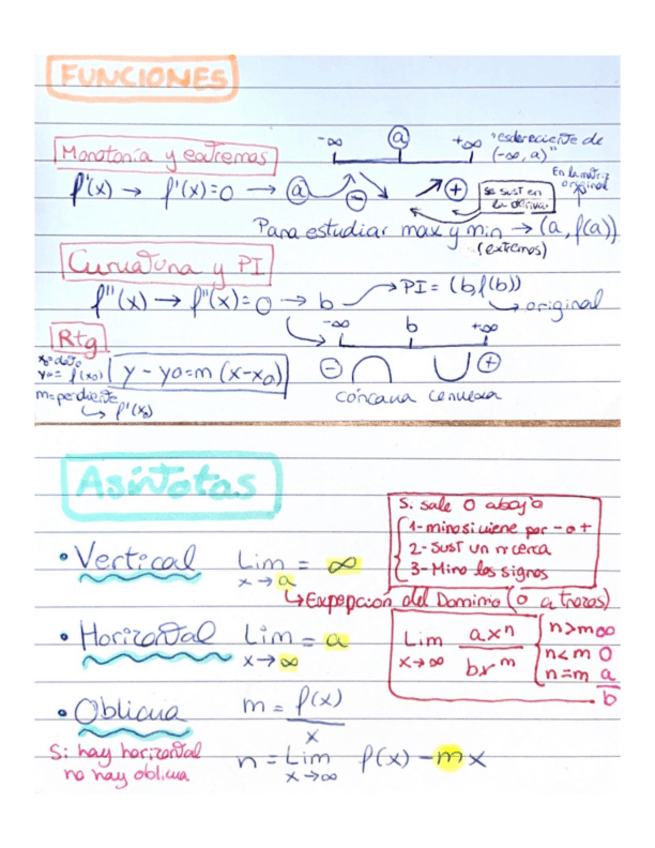 FUNCIONES
Monotonía y extremos
-∞ a +∞
"es decreciente de (-∞, a)"
f'(x) → f'(x)=0 → a
- +
se sust en la deriva.
En la matriz original
Para estudiar max y min → (a, f(a))
(extremos)
Curvatura y PI
f''(x) → f''(x)=0 → b → PI = (b, f(b))
→ original
-∞ b +∞
- +
cóncava convexa
Rtg
x₀=dato
y₀= f(x₀)
y - y₀=m (x-x₀)
m=pendiente
→ f'(x₀)
Asíntotas
Si sale 0 abajo
1- miro si viene por - o +
2- Sust un nº cerca
3- Miro los signos
• Vertical Lim x→a = ∞
→ Expepción del Dominio (o a trozos)
• Horizontal Lim x→∞ = a
Lim x→∞ axⁿ / bxᵐ
n>m ∞
n<m 0
n=m a/b
• Oblicua m = f(x) / x
Si hay horizontal
no hay oblicua
n = Lim x→∞ f(x) - mx